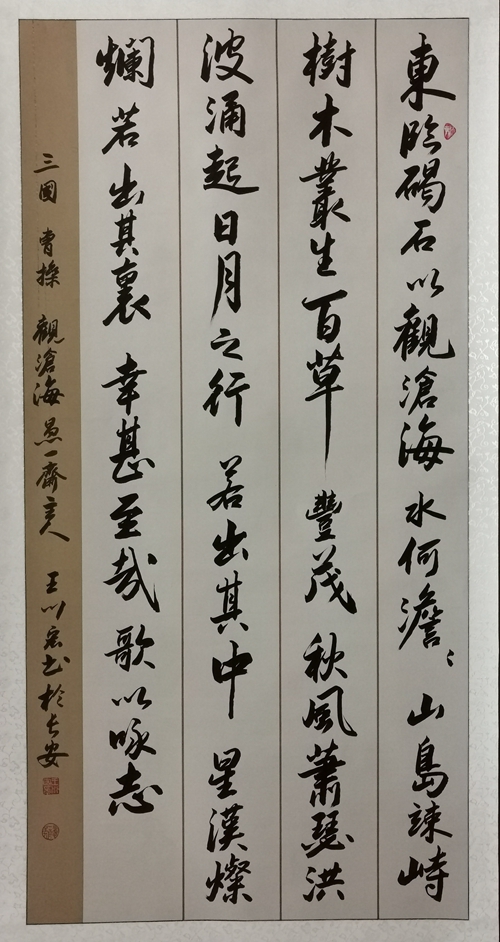 東臨碣石以觀滄海水何澹〻山島竦峙
樹木叢生百草豐茂秋風蕭瑟洪
波涌起日月之行若出其中星漢燦
爛若出其裏幸甚至哉歌以咏志
三國曹操觀滄海愚一齋主人王川宏书於长安